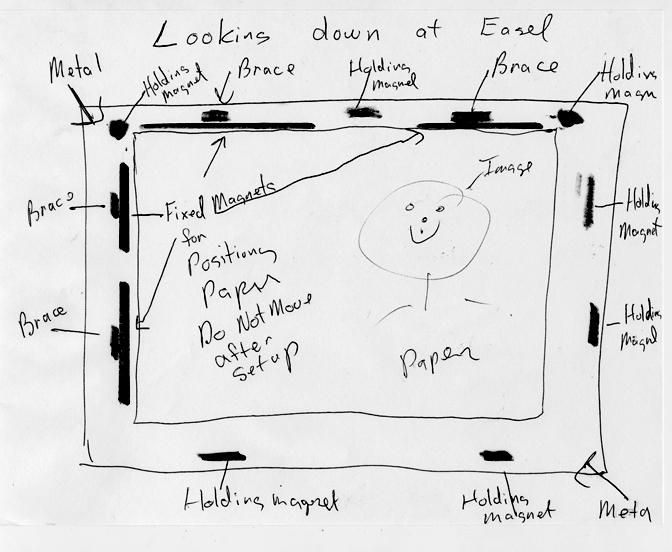 Looking down at Easel
Metal
Holding
magnet
Brace
Holding
magnet
Brace
Holding
magn
Image
Brace
Fixed Magnets
for
Positiong
Paper
Do Not Move
after
setup
Holding
Magnet
Brace
Holding
Magnet
Paper
Holding magnet
Holding
magnet
Meta